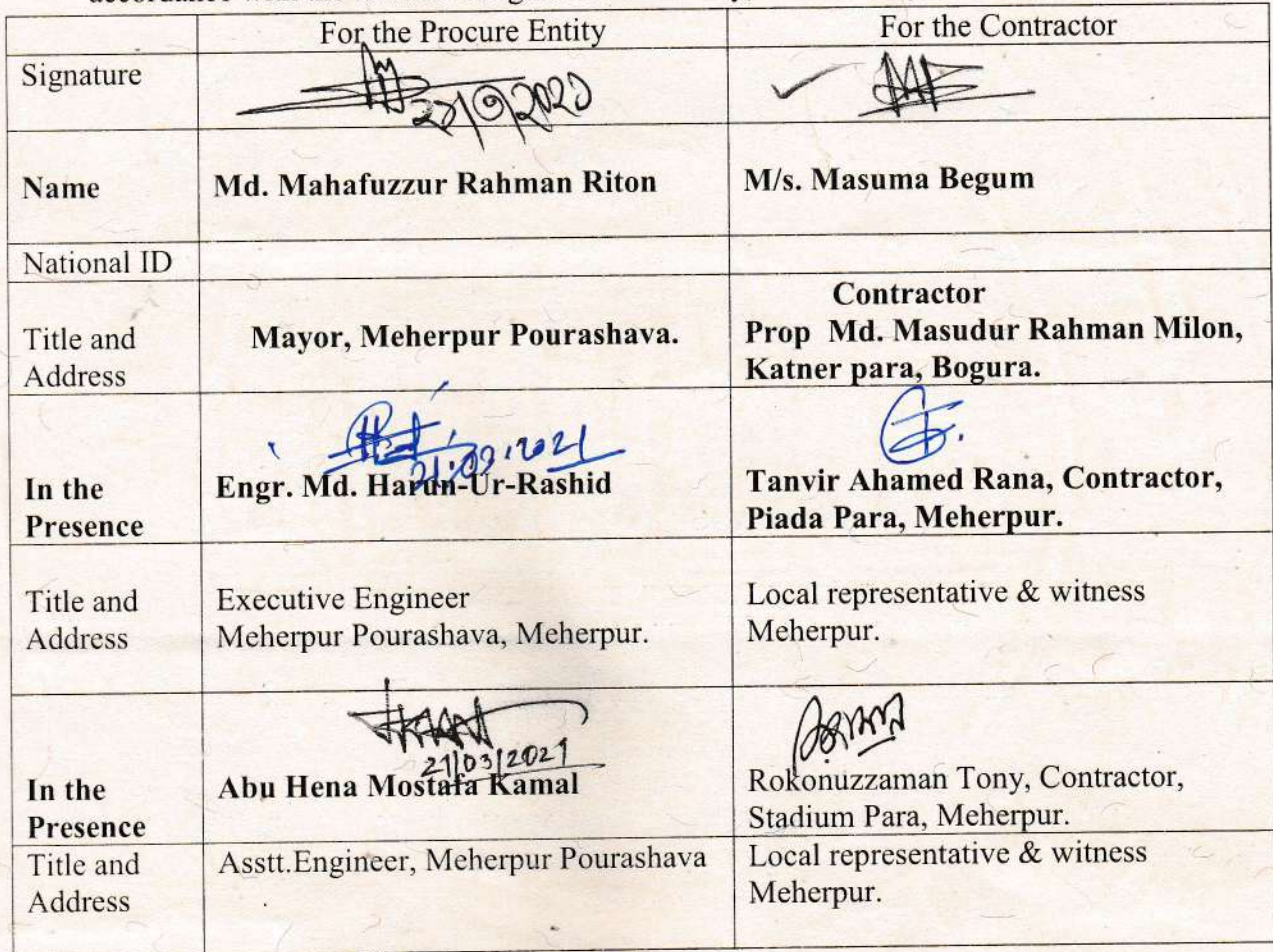 For the Procure Entity
For the Contractor
Signature
Name
Md. Mahafuzzur Rahman Riton
M/s. Masuma Begum
National ID
Title and
Address
Mayor, Meherpur Pourashava.
Contractor
Prop Md. Masudur Rahman Milon,
Katner para, Bogura.
21.03.2021
In the
Presence
Engr. Md. Harun-Ur-Rashid
Tanvir Ahamed Rana, Contractor,
Piada Para, Meherpur.
Title and
Address
Executive Engineer
Meherpur Pourashava, Meherpur.
Local representative & witness
Meherpur.
21/03/2021
In the
Presence
Abu Hena Mostafa Kamal
Rokonuzzaman Tony, Contractor,
Stadium Para, Meherpur.
Title and
Address
Asstt.Engineer, Meherpur Pourashava
Local representative & witness
Meherpur.